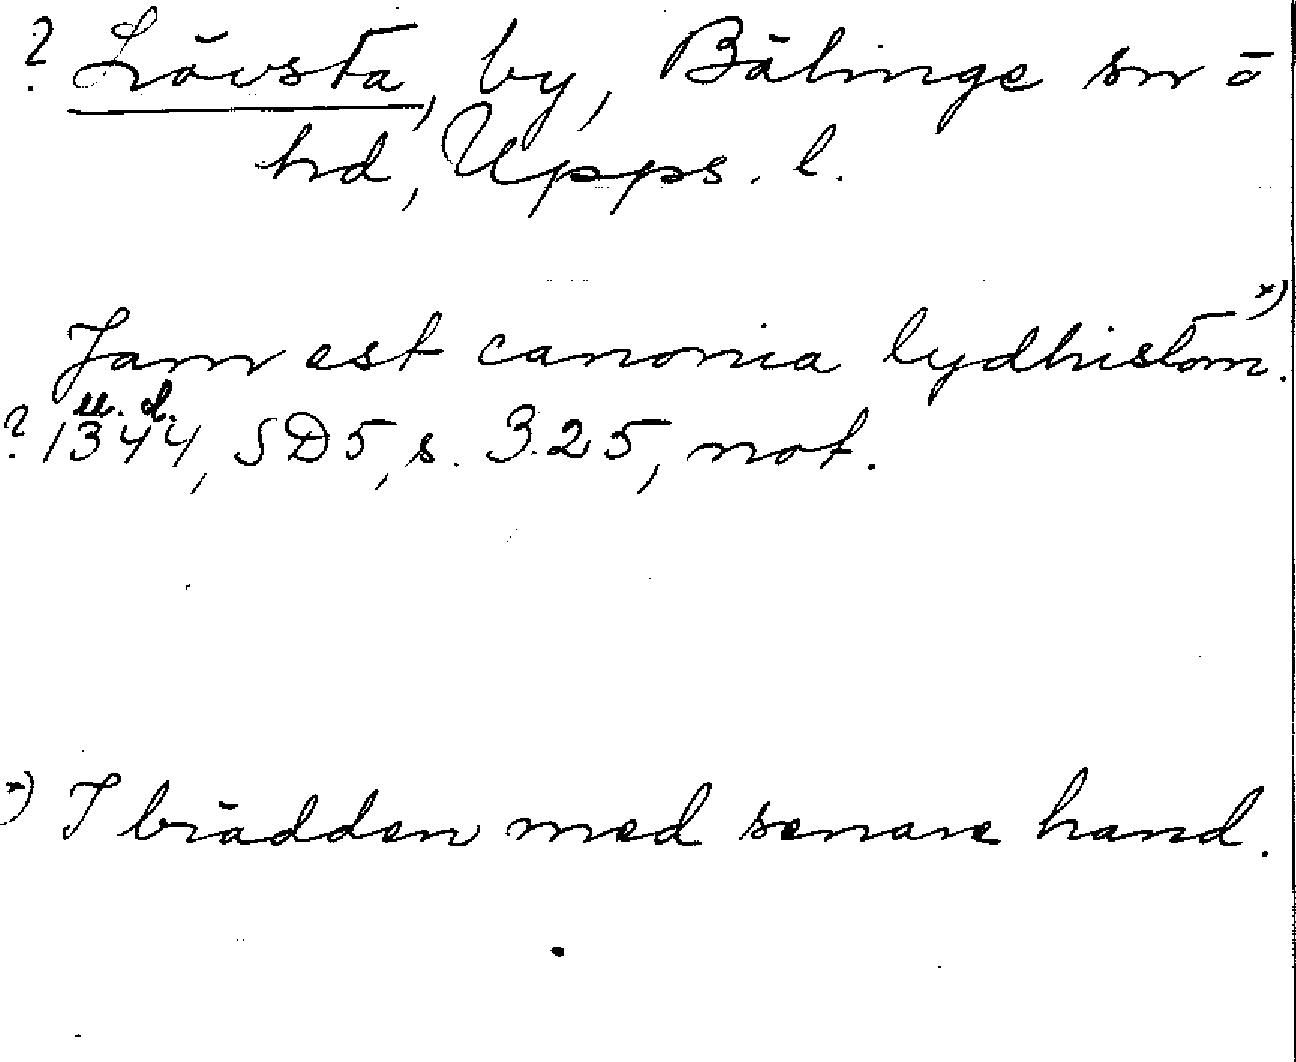 ? Lövsta, by, Bälinge sn o
hd, Upps. l.
Jam est canonia lydhistom. x)
u. d.
? 1344, SD5, s. 325, not.
x) I brädden med senare hand.